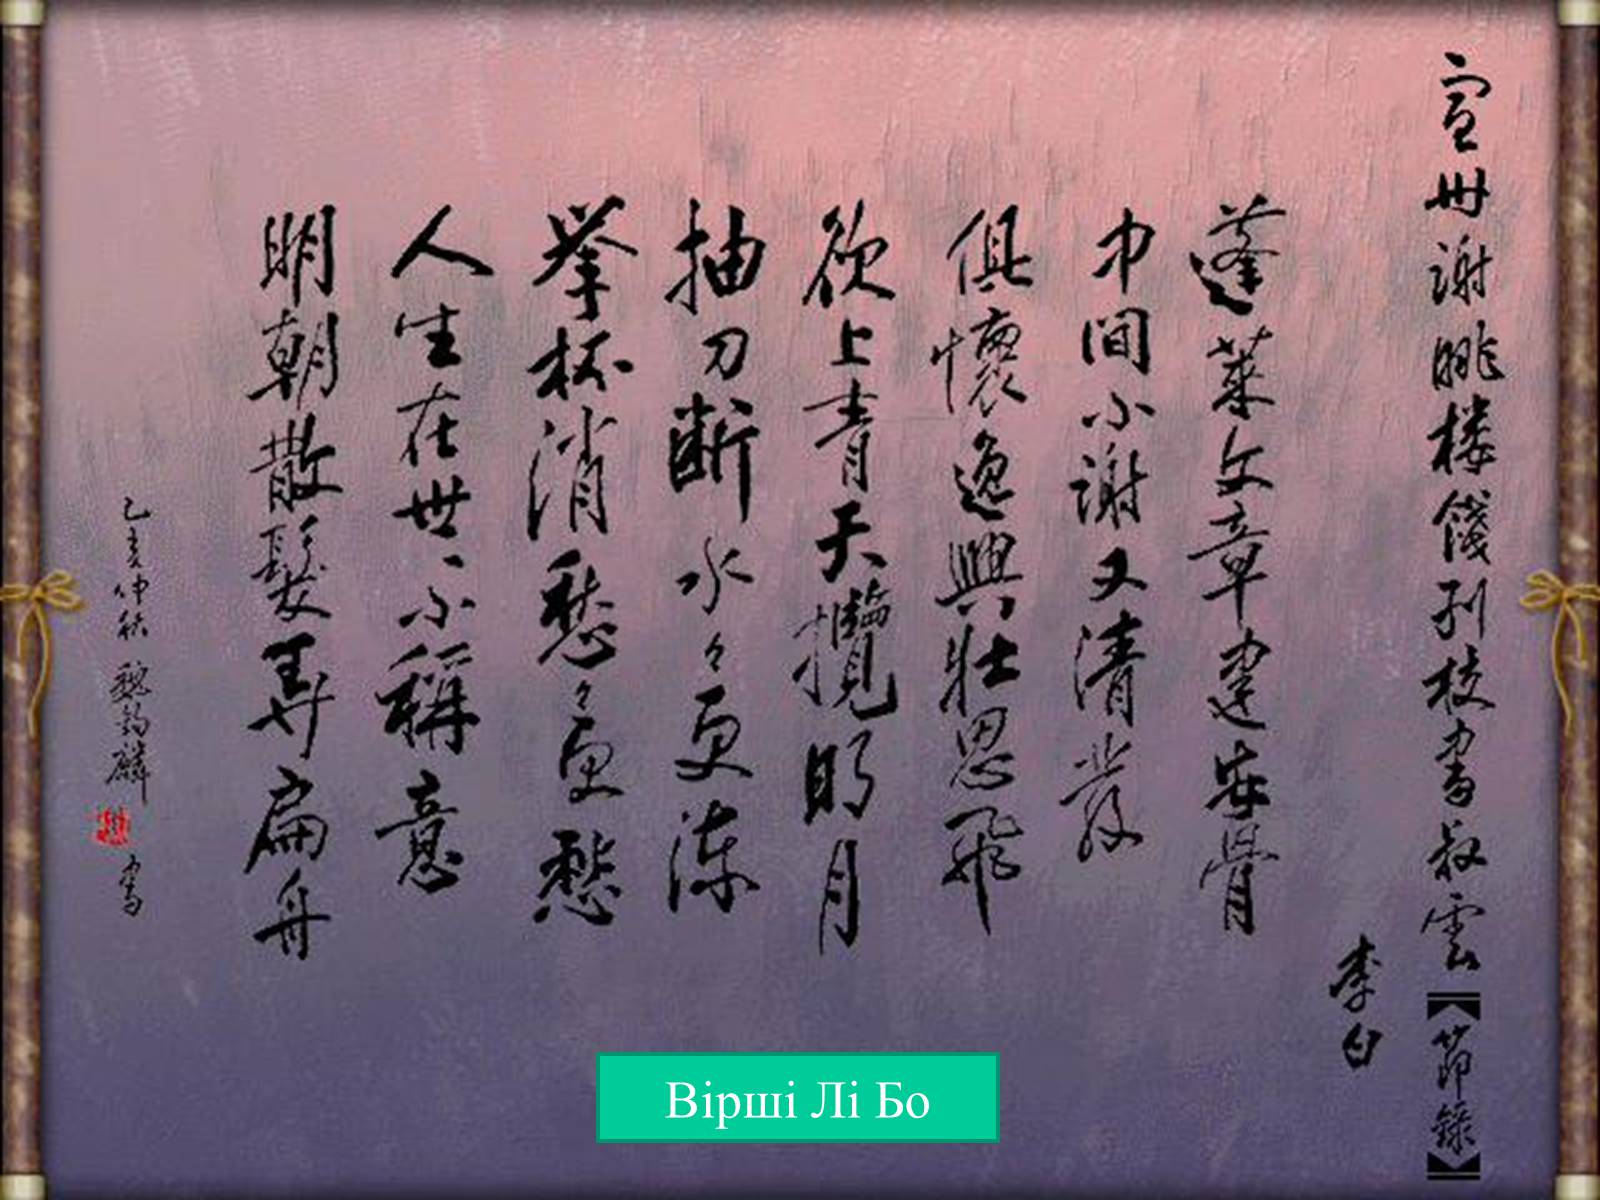 宣州謝朓楼餞别校書叔雲【節録】
李白
蓬萊文章建安骨
中間小謝又清發
俱懷逸興壯思飛
欲上青天攬明月
抽刀断水々更流
举杯消愁々更愁
人生在世不稱意
明朝散髮弄扁舟
亥仲秋 魏鈞麟 書
Вірші Лі Бо